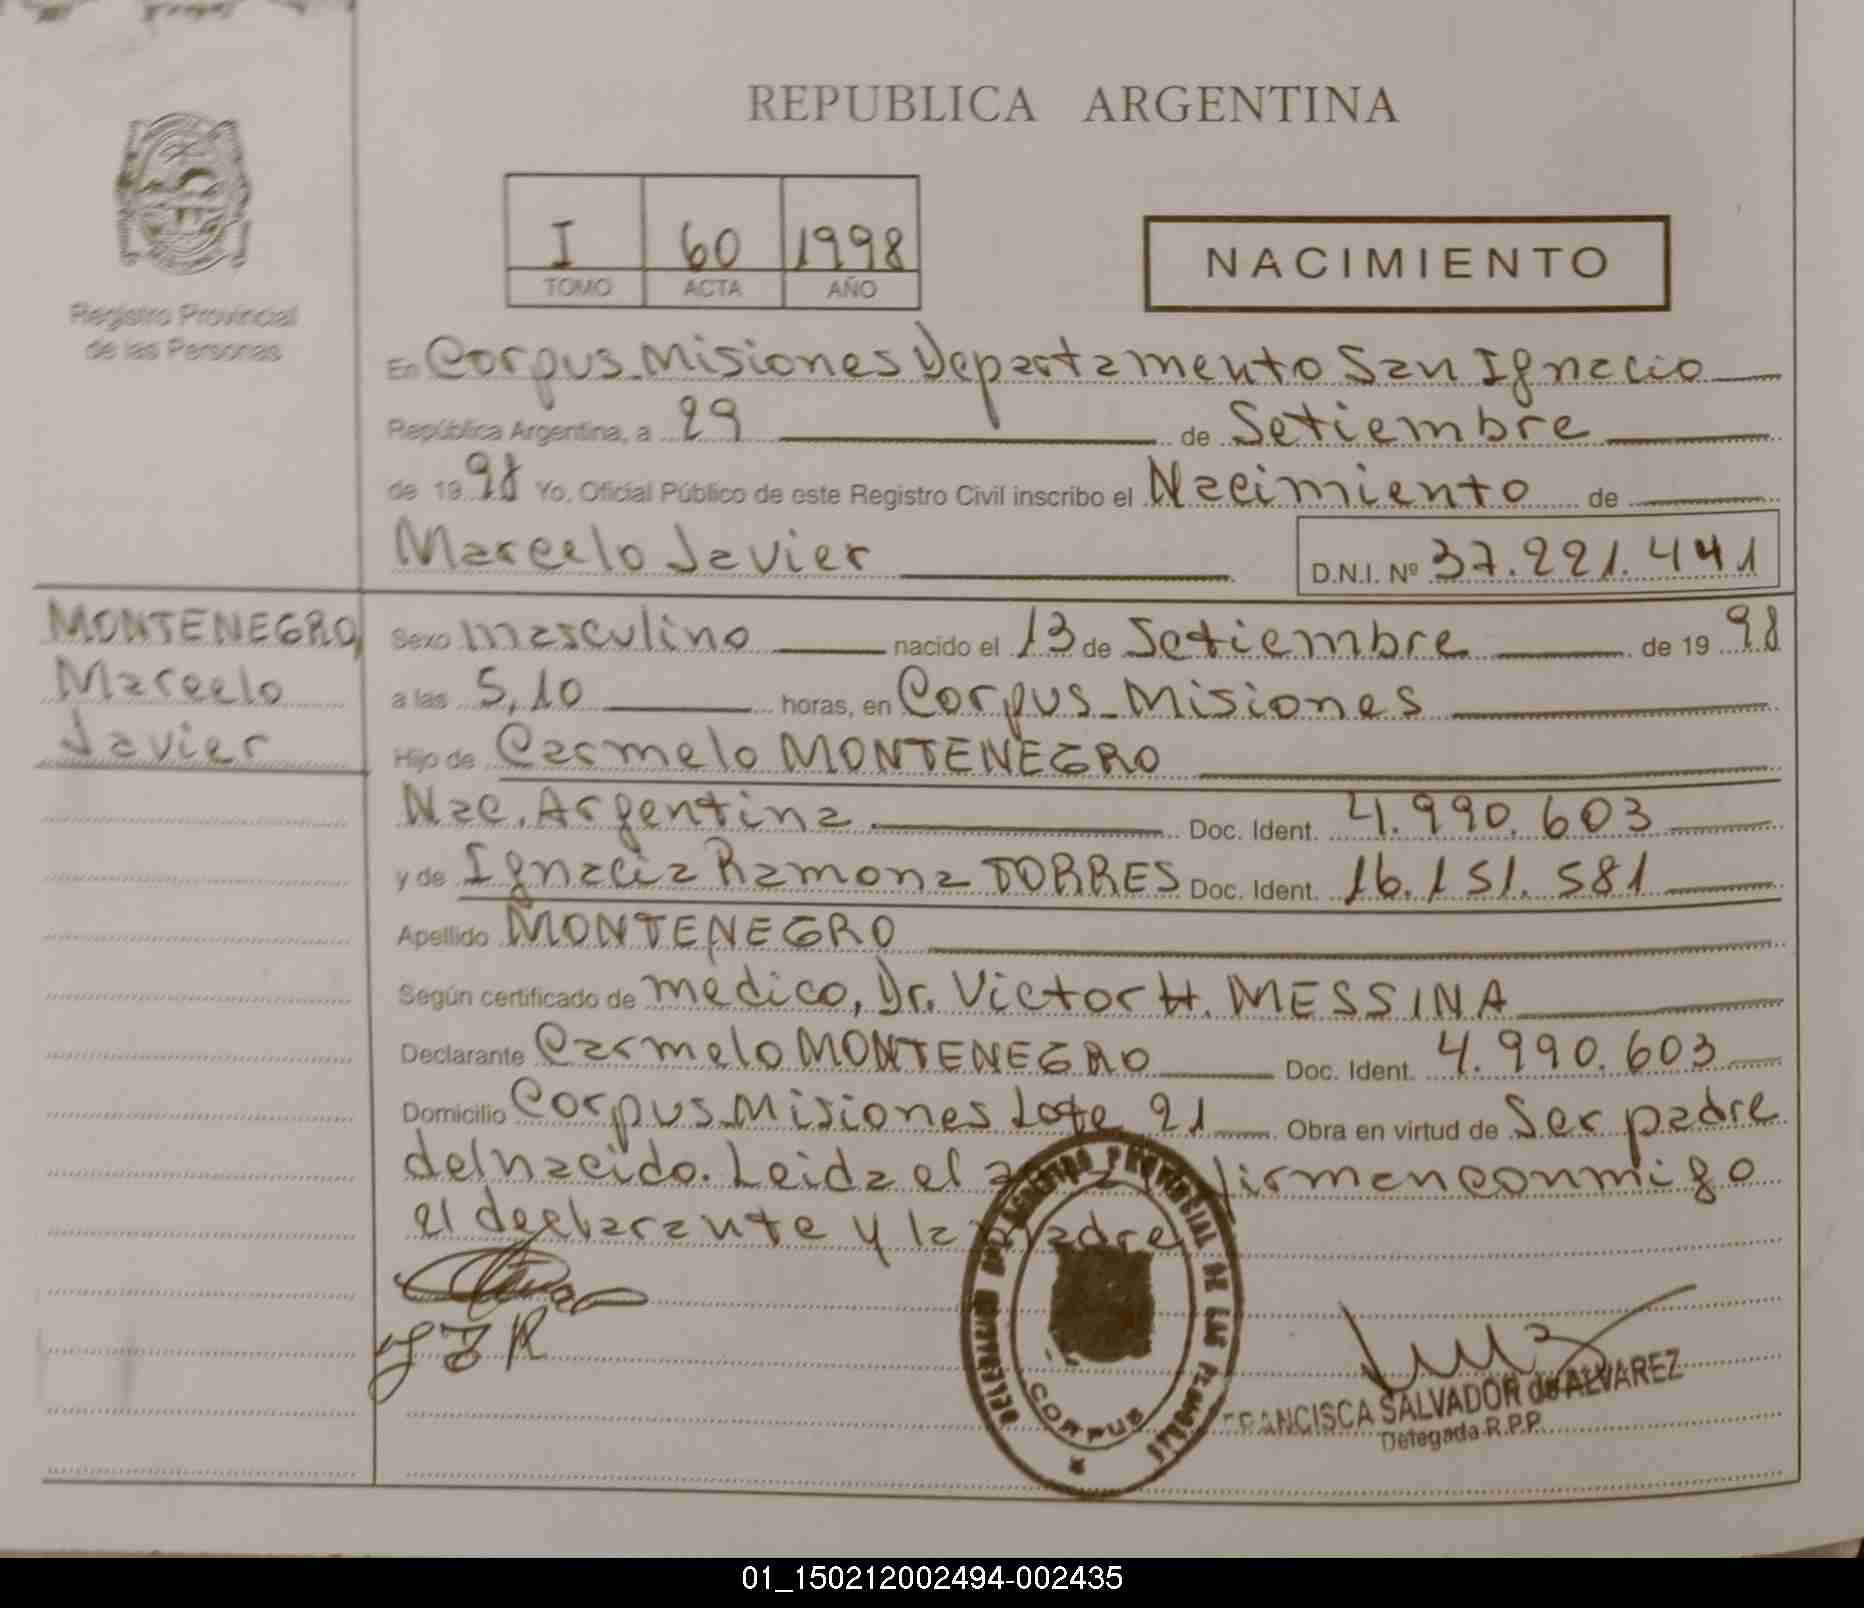 REPUBLICA ARGENTINA
I 60 1998
TOMO ACTA AÑO
NACIMIENTO
Registro Provincial
de las Personas
En Corpus-Misiones Departamento San Ignacio
República Argentina, a 29 de Setiembre
de 1998 Yo, Oficial Público de este Registro Civil inscribo el Nacimiento de
Marcelo Javier D.N.I. Nº 37.221.441
MONTENEGRO
Marcelo
Javier
Sexo masculino nacido el 13 de Setiembre de 1998
a las 5,10 horas, en Corpus-Misiones
Hijo de Carmelo MONTENEGRO
Nac. Argentina Doc. Ident. 4.990.603
y de Ignacia Ramona TORRES Doc. Ident. 16.151.581
Apellido MONTENEGRO
Según certificado de médico, Dr. Victor H. MESSINA
Declarante Carmelo MONTENEGRO Doc. Ident. 4.990.603
Domicilio Corpus-Misiones Lote 21 Obra en virtud de Ser padre
del nacido. Leida el firman conmigo
el declarante y la madre
DEL REGISTRO PROVINCIAL DE LAS PERSONAS
CORPUS
FRANCISCA SALVADOR de ALVAREZ
Delegada R.P.P.
01_150212002494-002435